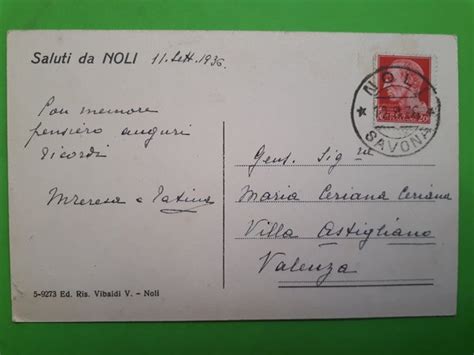 Saluti da NOLI 11 Sett. 1936
Con memore
pensiero auguri
ricordi
e
NOLI
SAVONA
Gent. Sig.ne
Maria Ceriana Ceriana
Villa Astigliano
Valenza
5-9273 Ed. Ris. Vibaldi V. - Noli